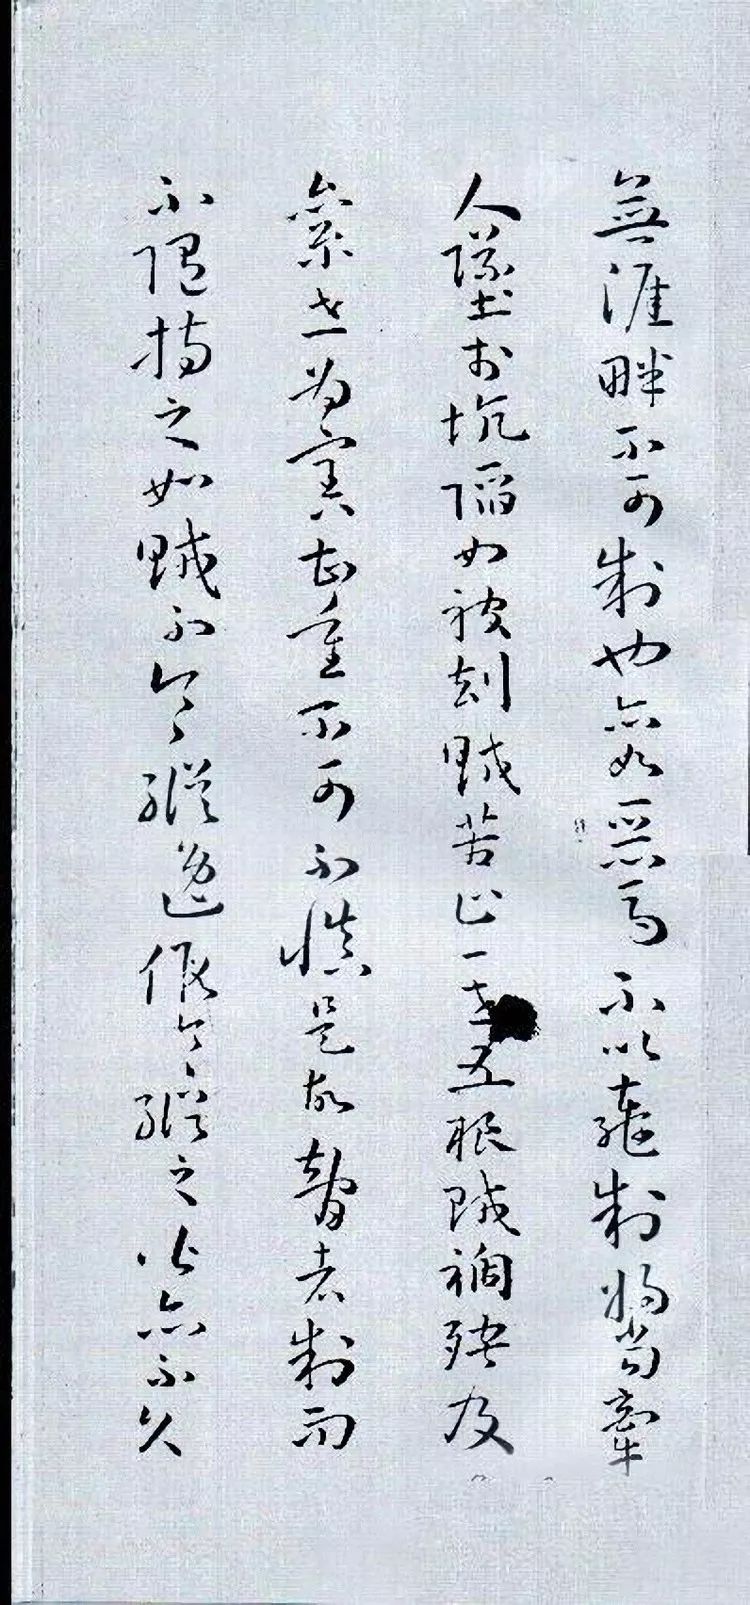 無涯畔不可制也亦如惡馬不以轡制將當牽
人墜於坑陷如被劫賊苦止一世五根賊禍殃及
累世為害甚重不可不慎是故智者制而
不隨持之如賊不令縱逸假令縱之皆亦不久